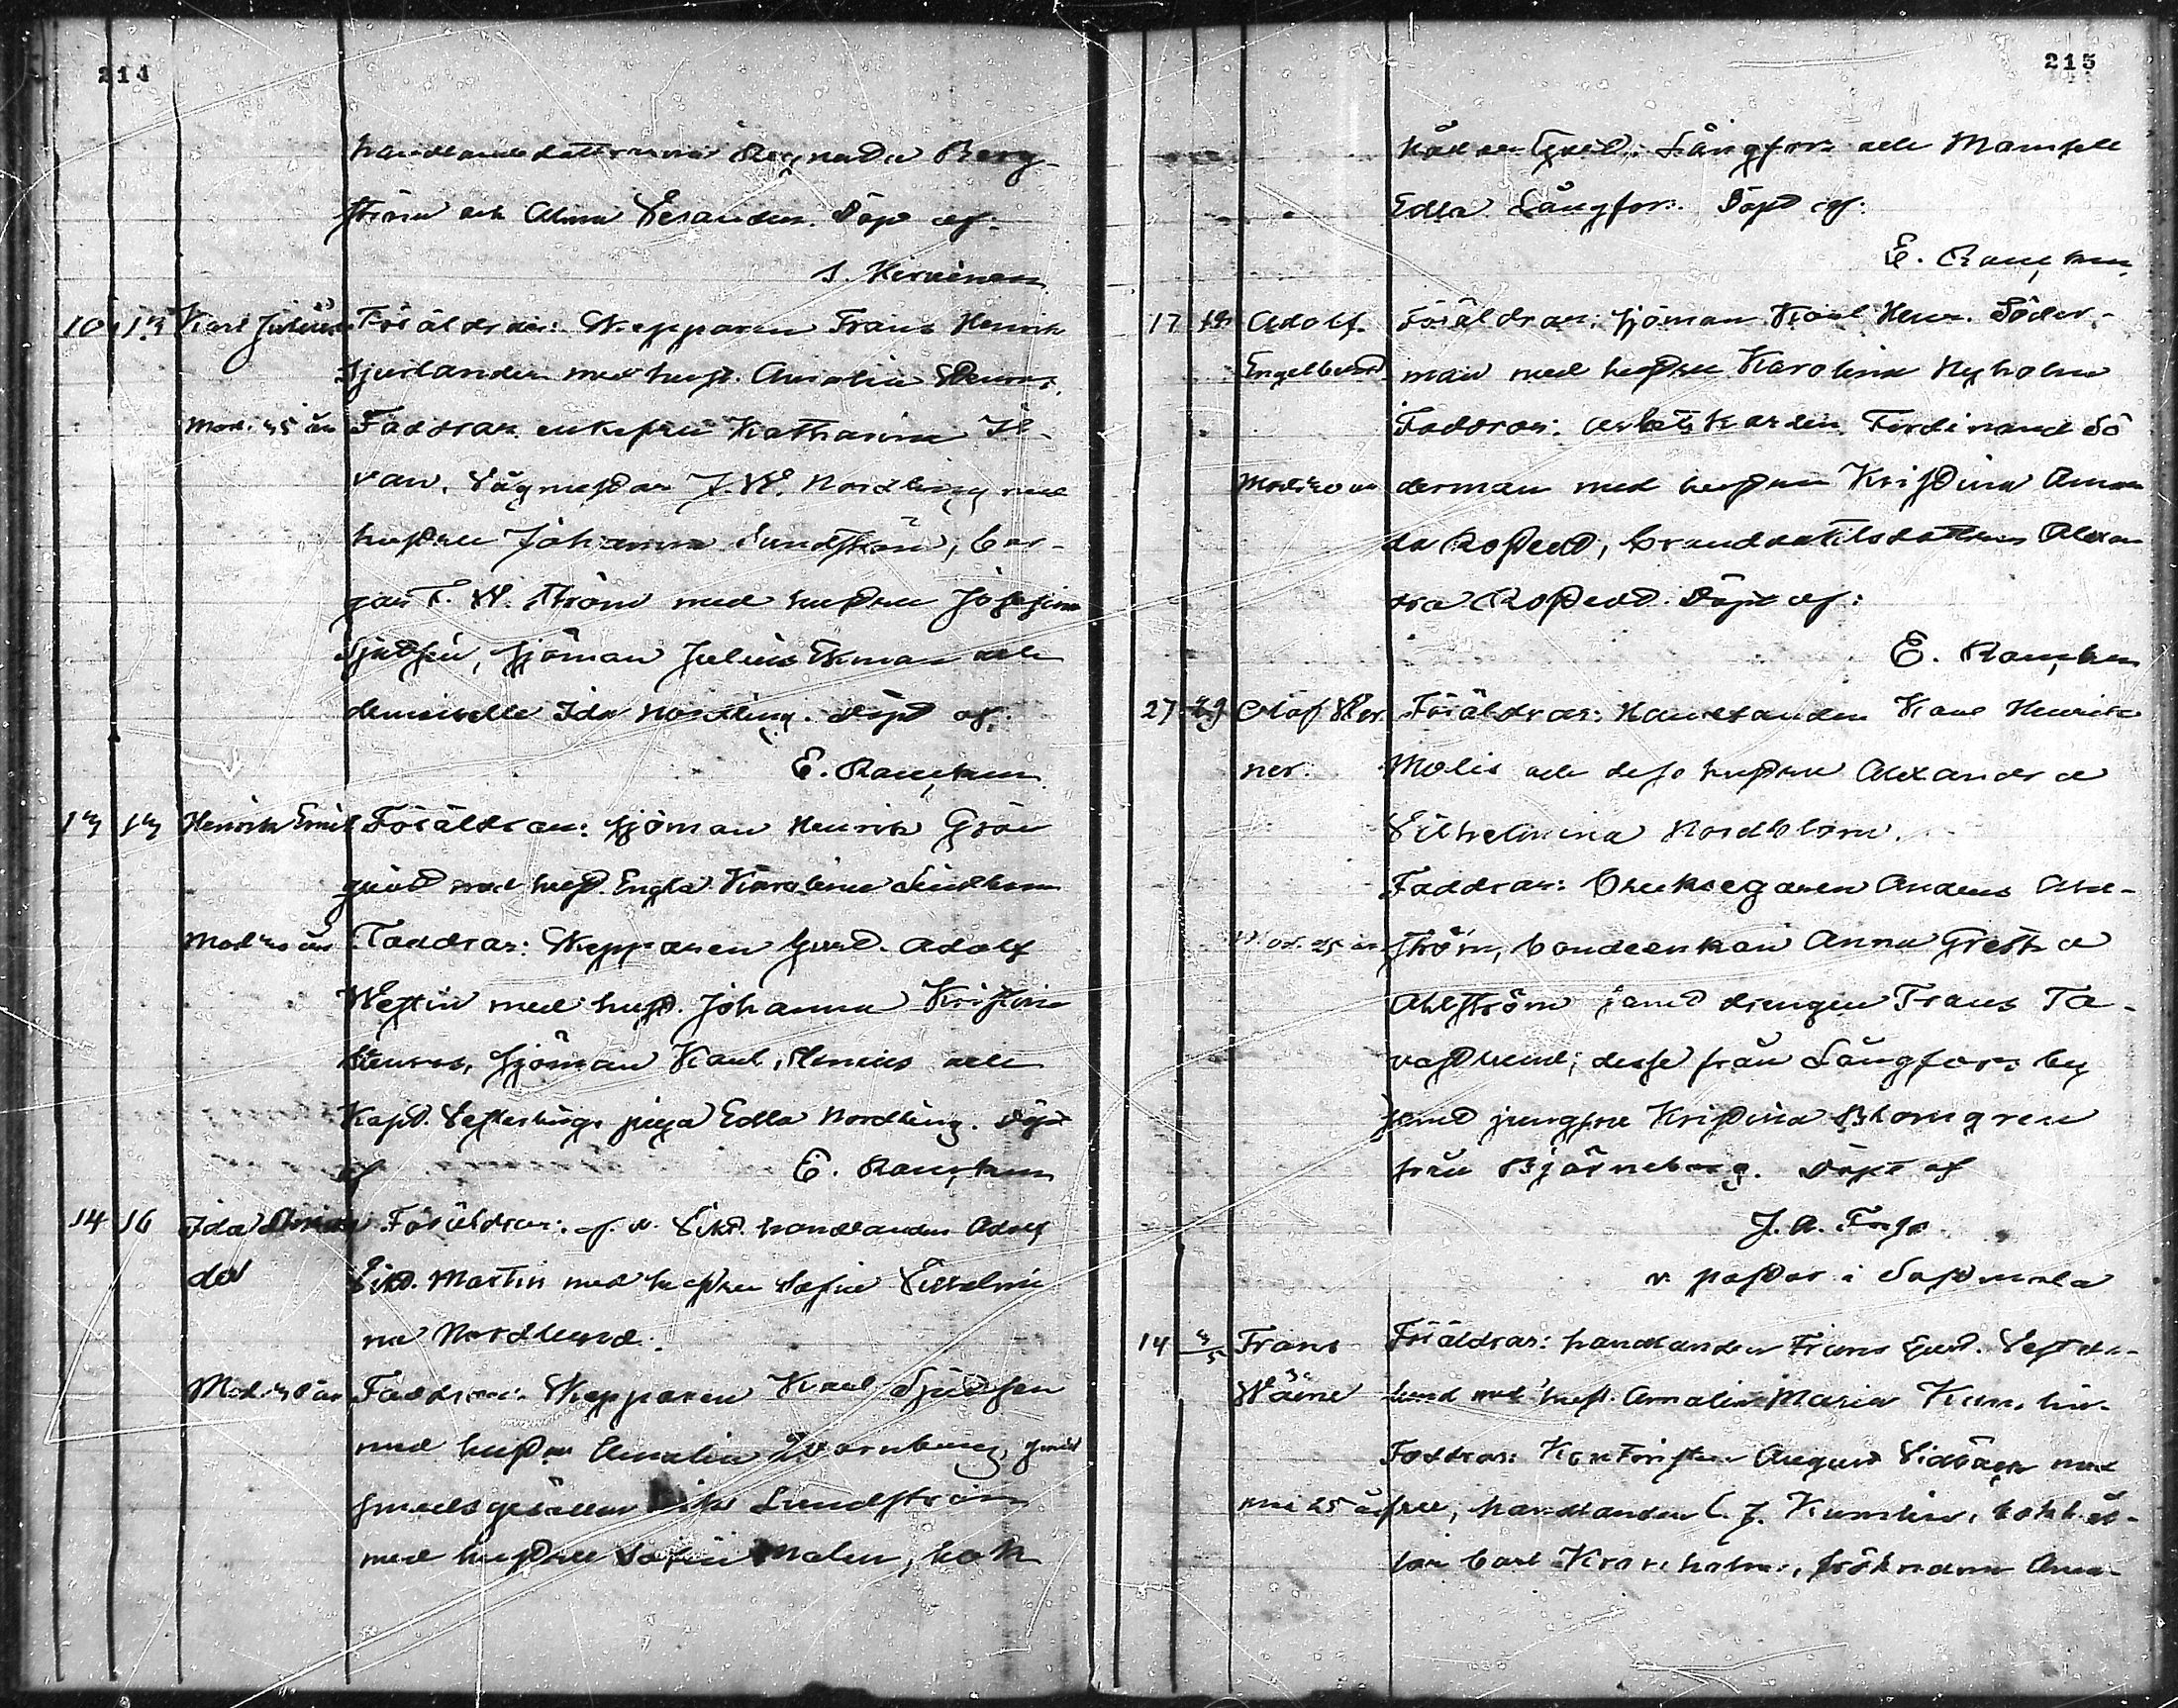 214
handlande döttrarna Regnada Berg-
ström och Alma Selander. Döpt af.
S. Kirvinen
10 13 Karl Julius Föräldrar: Skepparen Frans Henrik
Sjerlander med hust. Amalia
Mod. 35 år Faddrar: enkefru Katharina
van, Vågmestar J. W. Nordling med
hustru Johanna Sundström, bor-
gar F. W. Ström med hustru Josefina
Sjödin, sjöman Julius Ekman och
demoiselle Ida Nordling. Döpt af.
E. Rancken
13 13 Henrik Emil Föräldrar: sjöman Henrik Grön
qvist med hust. Engla Karolina Lindbom
Mod. år Faddrar: Skepparen Gust. Adolf
Westin med hust. Johanna Kristina
sjöman Karl Stenius och
Kapt. piga Edla Nordling. Döpt
af E. Rancken
14 16 Ida Föräldrar: f. d. Vikt. handlanden Adolf
da Vikt. Martin med hustru Sofia Vilhelmi
na Nordlund.
Mod. år Faddrar: Skepparen Karl Sjödin
med hustru Amalia Qvarnberg, samt
smedsgesällen Lundström
med hustru Sofia Malm, bok
215
Gust. Långfors och Mamsell
Edla Långfors. Döpt af.
E. Rancken
17 18 Adolf Föräldrar: sjöman Karl Henr. Söder-
Engelbert man med hustru Karolina Nyholm
Faddrar: arbetskarlen Ferdinand Sö
Mod. 20 år derman med hustru Kristina Aman
da Rostedt, brandvaktsdottern Alexan
dra Rostedt. Döpt af:
E. Rancken
27 29 Olaf Wer Föräldrar: Handlanden Karl Henrik
ner. Molis och dess hustru Alexandra
Vilhelmina Nordblom.
Faddrar: Bruksegaren Anders Ahl-
Mod. 25 år ström, bondeenkan Anna Greta
Ahlström samt drengen Frans Ta-
vastlund; desse från Långfors by
samt jungfru Kristina Blomgren
från Björneborg. Döpt af
J. A.
v. pastor i Sastmola
14 3/5 Frans Föräldrar: handlanden Frans Gust. Vester-
Wäinö lund med hust. Amalia Maria Kumlin.
Faddrar: Kontoristen August Sidbäck med
25 år fru, handlanden C. J. Kumlin, bokhål-
lare Carl Kronholm, fröknarne Ama-